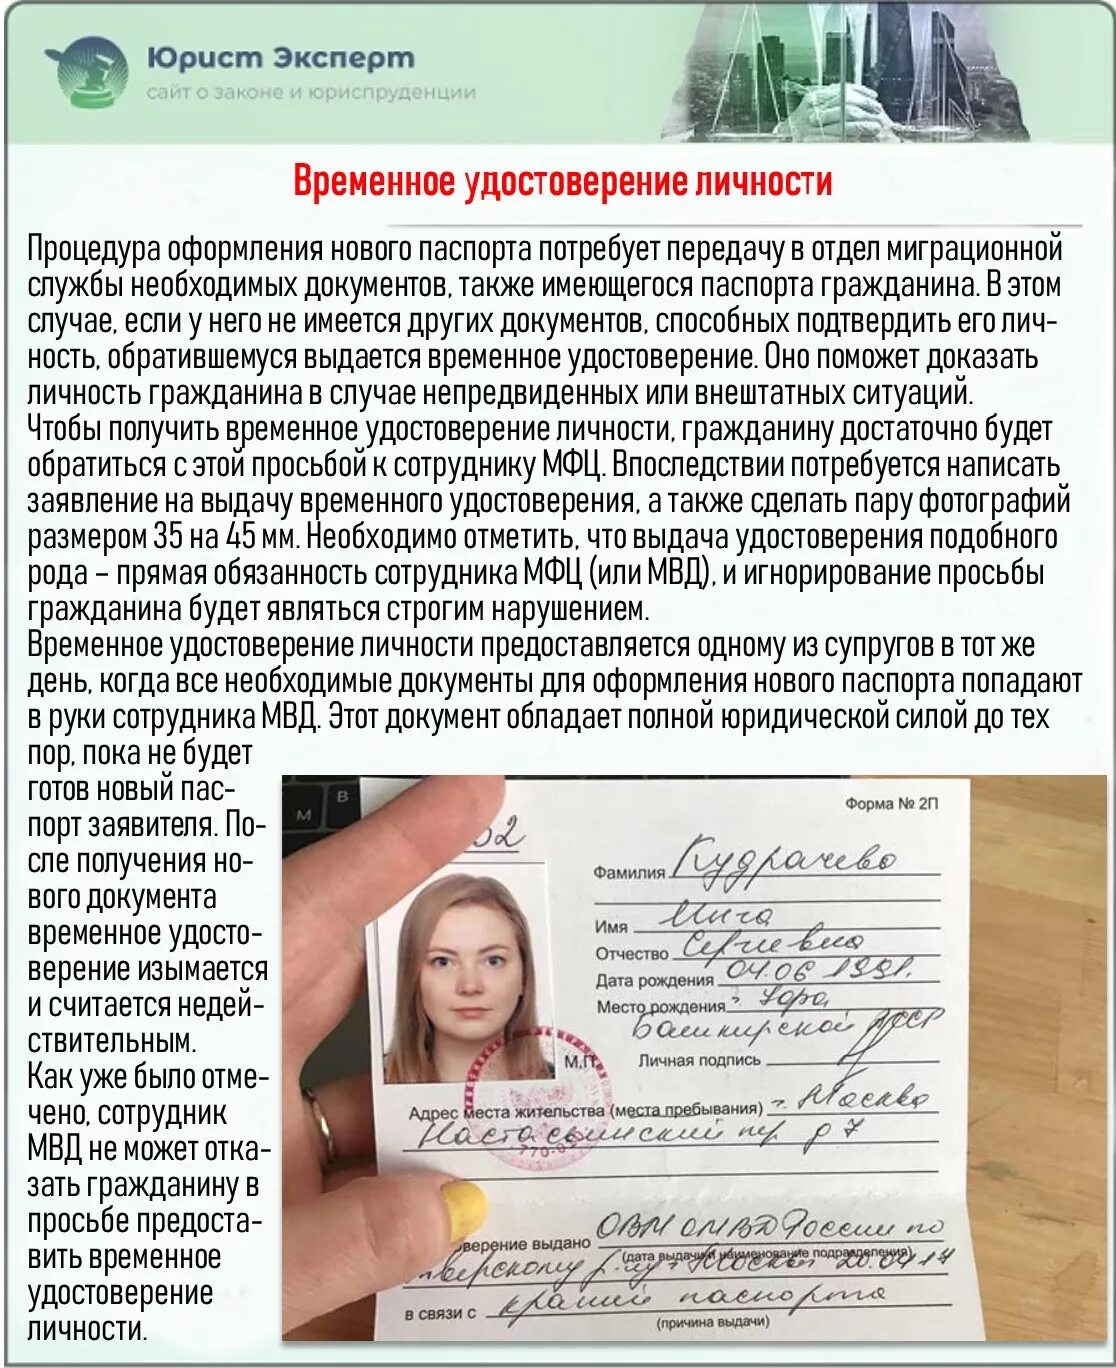 Юрист Эксперт
сайт о законе и юриспруденции
Временное удостоверение личности
Процедура оформления нового паспорта потребует передачу в отдел миграционной
службы необходимых документов, также имеющегося паспорта гражданина. В этом
случае, если у него не имеется других документов, способных подтвердить его лич-
ность, обратившемуся выдается временное удостоверение. Оно поможет доказать
личность гражданина в случае непредвиденных или внештатных ситуаций.
Чтобы получить временное удостоверение личности, гражданину достаточно будет
обратиться с этой просьбой к сотруднику МФЦ. Впоследствии потребуется написать
заявление на выдачу временного удостоверения, а также сделать пару фотографий
размером 35 на 45 мм. Необходимо отметить, что выдача удостоверения подобного
рода – прямая обязанность сотрудника МФЦ (или МВД), и игнорирование просьбы
гражданина будет являться строгим нарушением.
Временное удостоверение личности предоставляется одному из супругов в тот же
день, когда все необходимые документы для оформления нового паспорта попадают
в руки сотрудника МВД. Этот документ обладает полной юридической силой до тех
пор, пока не будет
готов новый пас-
порт заявителя. По-
сле получения но-
вого документа
временное удосто-
верение изымается
и считается недей-
ствительным.
Как уже было отме-
чено, сотрудник
МВД не может отка-
зать гражданину в
просьбе предоста-
вить временное
удостоверение
личности.
М
В
Форма № 2П
Фамилия Кудрачева
Имя Инга
Отчество Сергеевна
Дата рождения 04.06 1991.
Место рождения г. Уфа,
Башкирской АССР
Личная подпись
М.П.
Адрес места жительства (места пребывания) г. Москва
Настасьинский пер. д 7
верение выдано ОВМ ОМВД России по
(дата выдачи и наименование подразделения)
г. Москва 20.04 17
в связи с кражей паспорта
(причина выдачи)